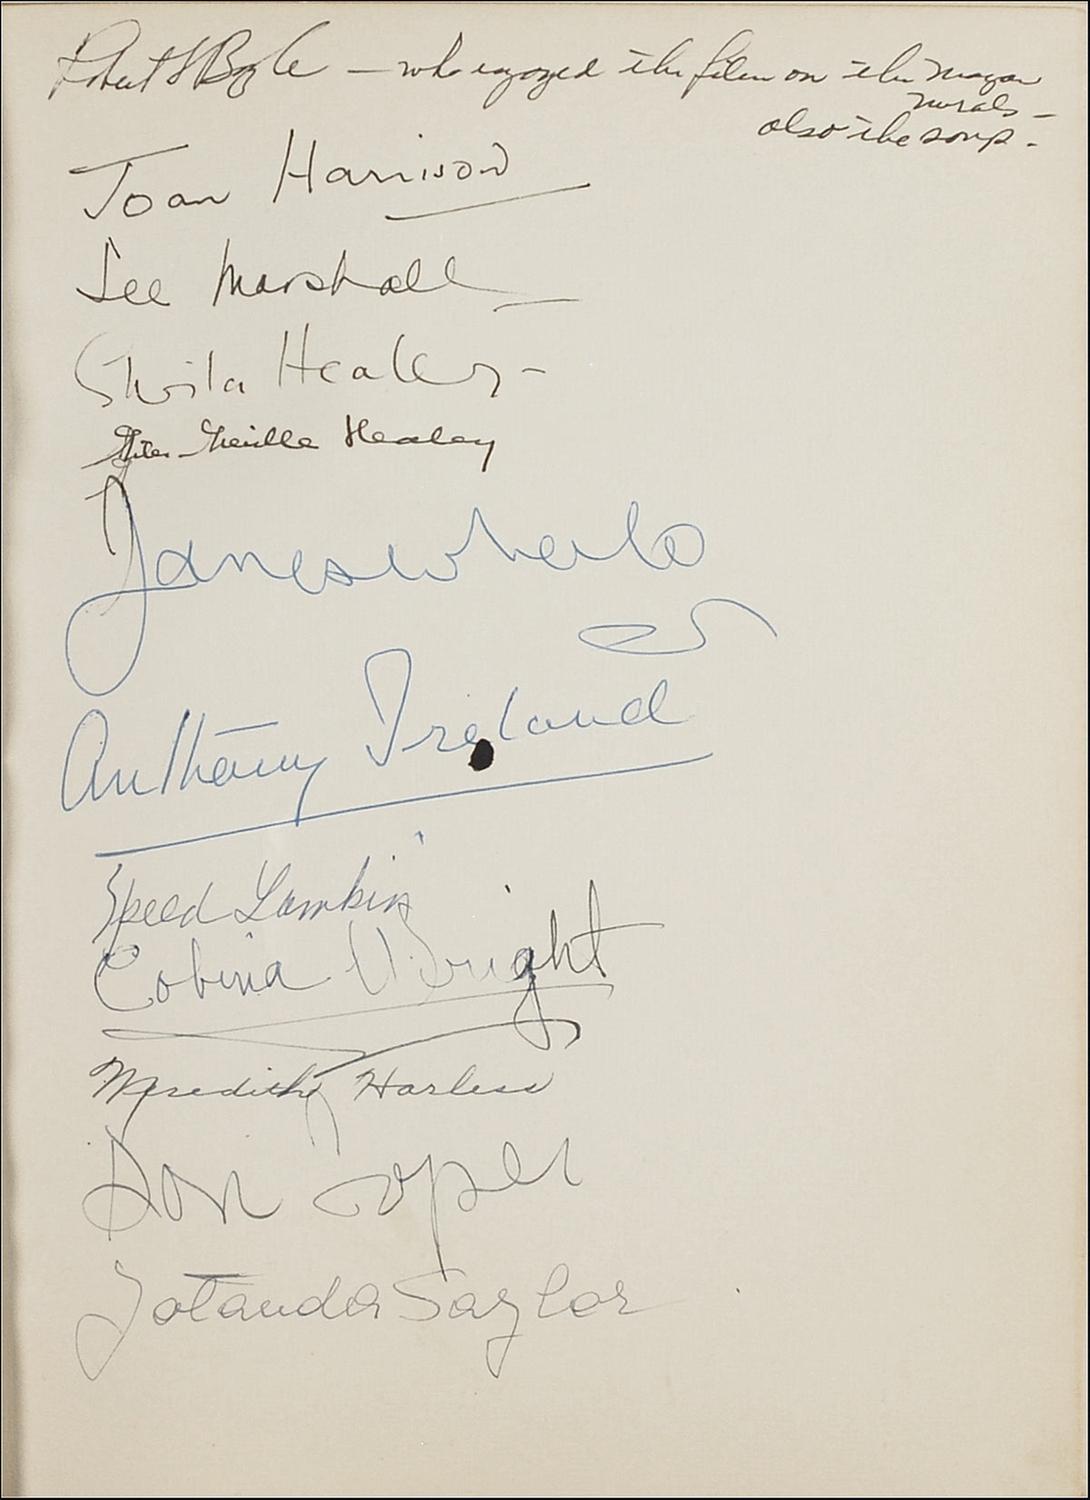 Robert F Boyle – who enjoyed the film on the Mayan
murals –
also the soup.
Joan Harrison
Lee Marshall
Sheila Healey –
Giles Greville Healey
James Whale
Anthony Ireland
Speed Lamkin
Cobina Wright
Meredith Harless
Don Loper
Yolanda Saylor